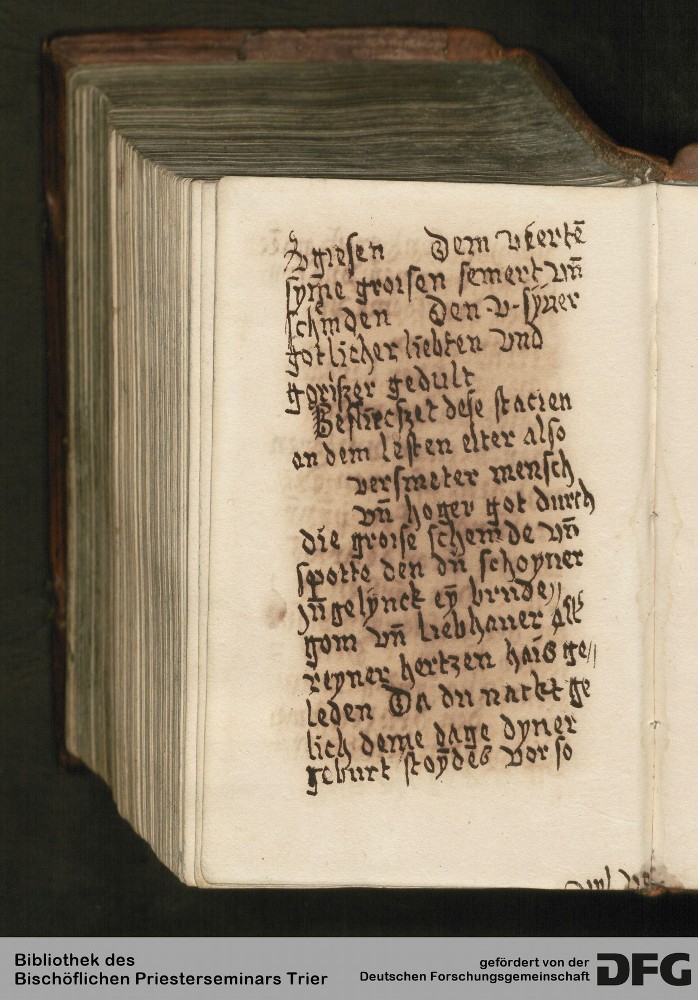 vgiesen Dem vierte͞
syme groisen semert vn̄
schinden Den v syner
gotlicher liebten vnd
groiszer gedult
Besliesszet dese stacien
an dem lesten elter also
versmeter mensch
vn̄ hoger got durch
die groise schemde vn̄
spotte den du schoyner
Jn̄gelynck ey̅ brude//
gom vn̄ liebhauer all
reyner hertzen hais ge//
leden Da du nackt ge
lich deme dage dyner
geburt stoydes vor so
Bibliothek des
Bischöflichen Priesterseminars Trier
gefördert von der
Deutschen Forschungsgemeinschaft
DFG